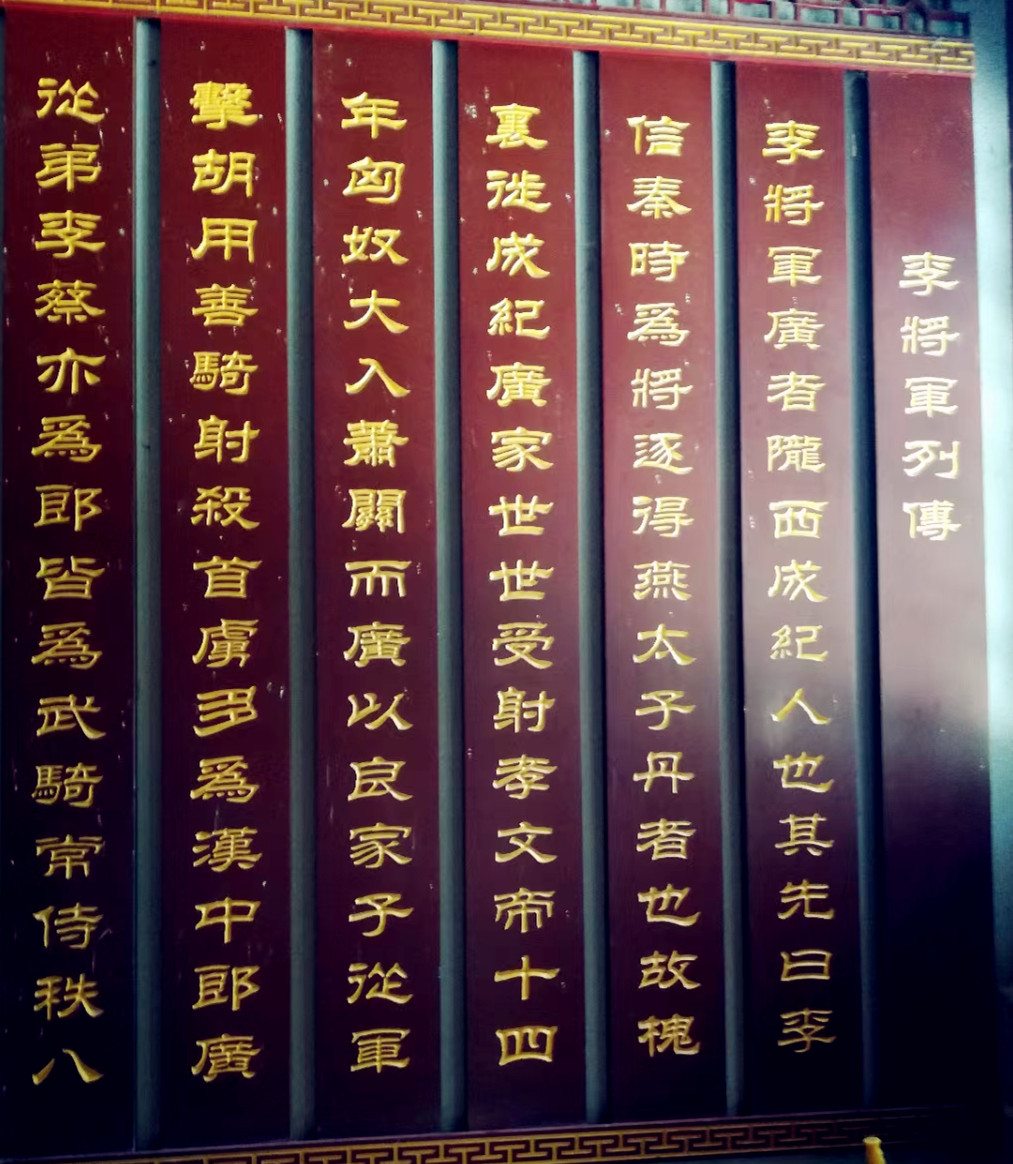 李將軍列傳
李將軍廣者隴西成紀人也其先曰李
信秦時爲將逐得燕太子丹者也故槐
裏徙成紀廣家世世受射孝文帝十四
年匈奴大入蕭關而廣以良家子從軍
擊胡用善騎射殺首虜多爲漢中郎廣
從弟李蔡亦爲郎皆爲武騎常侍秩八